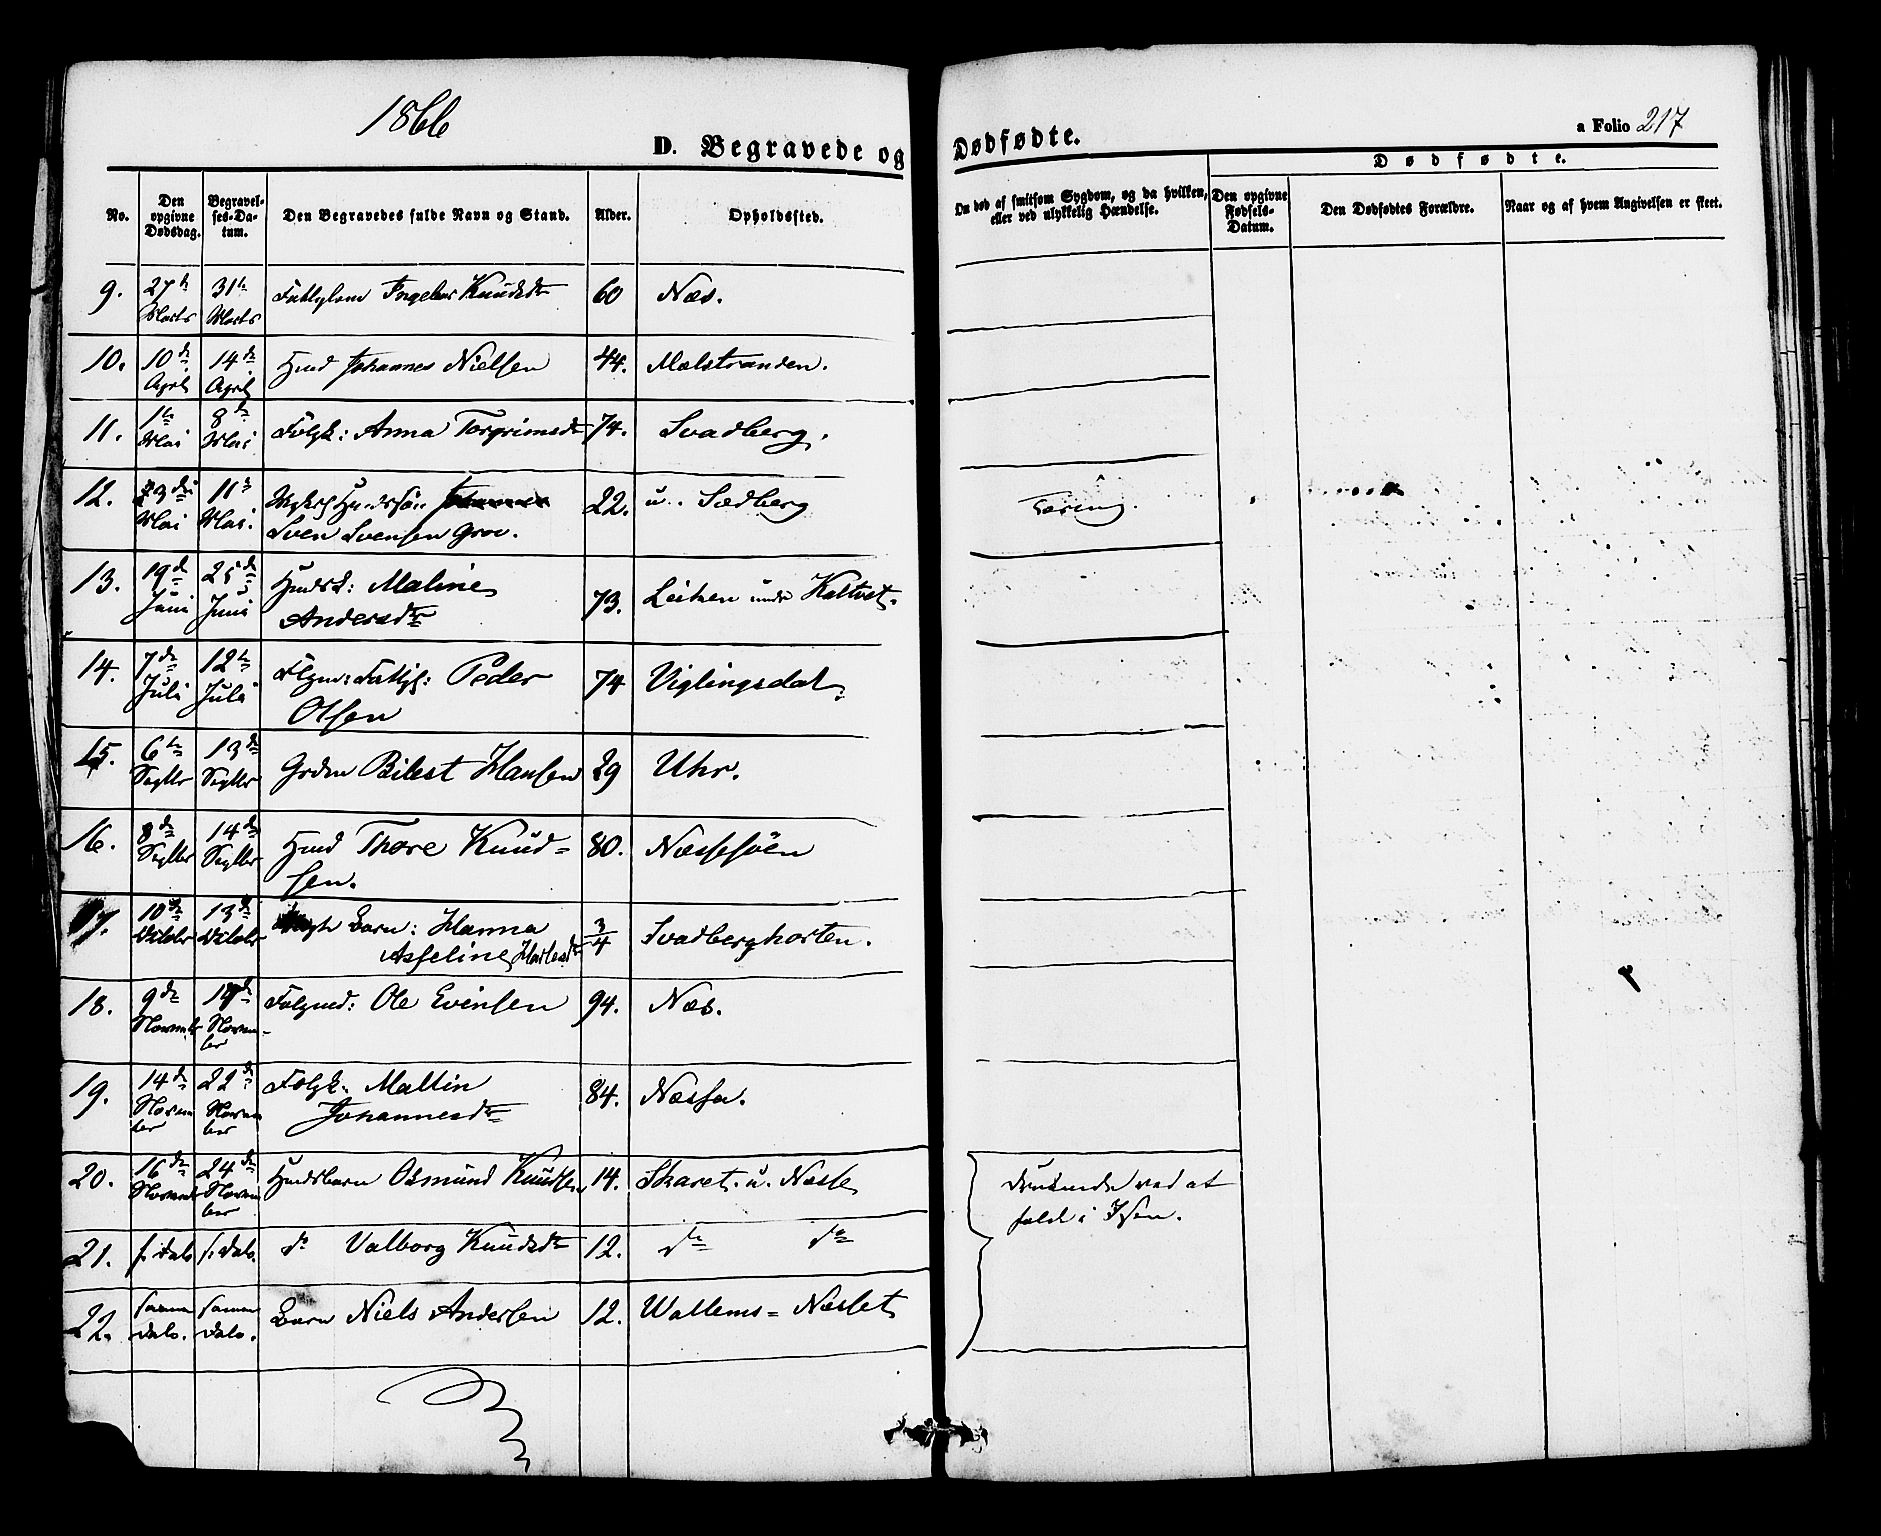 1866
D. Begravede og Dødfødte.
a Folio 217
No.
Den opgivne Dødsdag.
Begravelses-Datum.
Den Begravedes fulde Navn og Stand.
Alder.
Opholdssted.
Om død af smitsom Sygdom, og da hvilken, eller ved ulykkelig Hændelse.
Dødfødte.
Den opgivne Fødsels-Datum.
Den Dødfødtes Forældre.
Naar og af hvem Angivelsen er skeet.
9. 27de Marts 31te Marts Fattiglem Ingebor Knudsdtr 60 Næs.
10. 10de April 14de April Hmd Johannes Nielsen 44. Mælstranden.
11. 1te Mai 8de Mai Folgk: Anna Torgrimsdtr 74. Svadberg.
12. Mai 11te Mai. Sven Svensen Grov. 22. u. Sædberg Tæring.
13. 19de Juni 25de Juni Hmdsk: Maline
Andersdtr 73. Leitzen under Kaltvet.
14. 7de Juli 12te Juli Flgm: Fattigl: Peder
Olsen 74 Viglingsdal.
15. 6te Septbr 13de Septbr Grdm Bilest Hansen 29 Uhr.
16. 8de Septbr 14de Septbr Hmd Thore Knud-
sen. 80. Næssesøen
17. 10de Octobr 13de Octobr Barn: Hanna
Asseline 3/4 Svadberghorten.
18. 9de Novembr 14de November Folgmd: Ole Evensen 94. Næs.
19. 14de November 22de November Folgk: Maltin
Johannesdtr 84. Næssa.
20. 16de Novembr 24de November Hmdsbarn Osmund Knudsen 14. Skaret u. Næsse druknede ved at
falde i Isen.
21. s. Dato s. Dato. do Valborg Knudsdtr 12. do do
22. samme Dato. samme Dato. Barn Niels Andersen 12. Wallems-Næsset